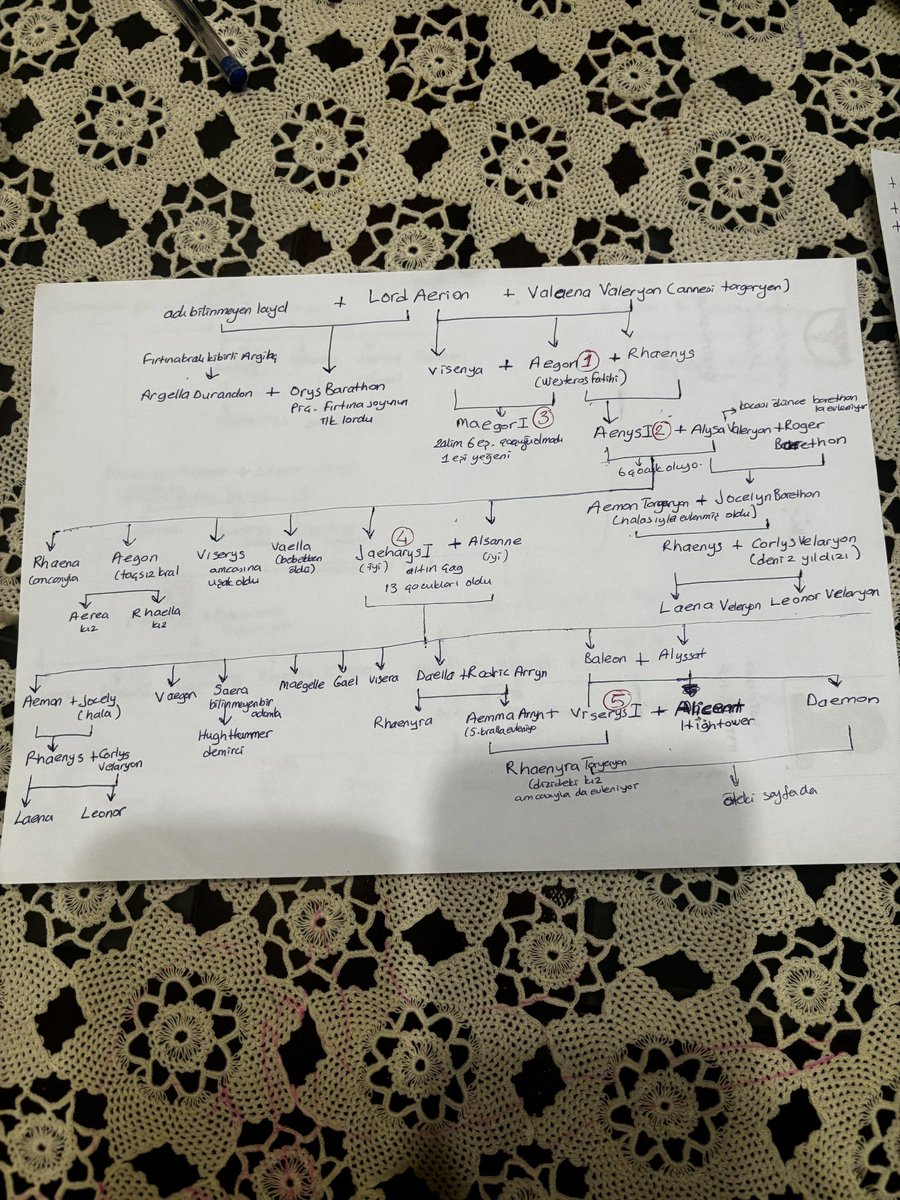 adı bilinmeyen layd + Lord Aerion + Valaena Valeryon (annesi targeryen)
Fırtınabralı kibirli Argilaç
Visenya + Aegon 1 + Rhaenys
(Westeros fatihi)
Argella Durandon + Orys Barathon
Fırtına soyunun
ilk lordu
kocası ölünce barethon
la evleniyor
Maegor I 3
zalim 6 eş. çocuğu olmadı
1 eşi yeğeni
Aenys I 2 + Alysa Valeryon + Roger
Barethon
6 çocuk oluyo.
Aemon Targeryon + Jocelyn Barethon
(halasıyla evlenmiş oldu)
Rhaena
(amcasıyla
Aegon
(taçsız kral
Viserys
amcasına
uşak oldu
Vaella
(bebekken
öldü)
Jaeharys I 4 + Alsanne
(iyi) altın çağ (iyi)
13 çocukları oldu
Rhaenys + Corlys Velaryon
(deniz yıldızı)
Aerea
kız
Rhaella
kız
Laena Veleryon Leonor Velaryon
Aemon + Jocely
(hala)
Vaegon
Saera
bilinmeyen bir
adamla
Maegelle
Gael
visera
Daella + Rodric Arryn
Baleon + Alyssat
Hugh Hammer
demirci
Rhaenys + Corlys
Velaryon
Rhaenyra
Aemma Arryn + Viserys I 5 + Alicent
Hightower
(5. kralla evleniyo
Daemon
Laena Leonor
Rhaenyra Targeryon
(dizideki kız
amcasıyla da evleniyor
öteki sayfada